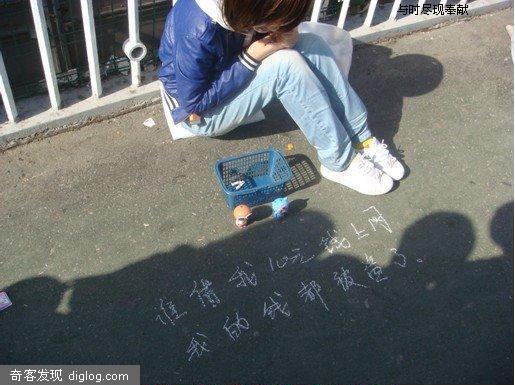 与时尽现奉献
谁借我10元钱上网
我的钱都被了。
奇客发现 diglog.com